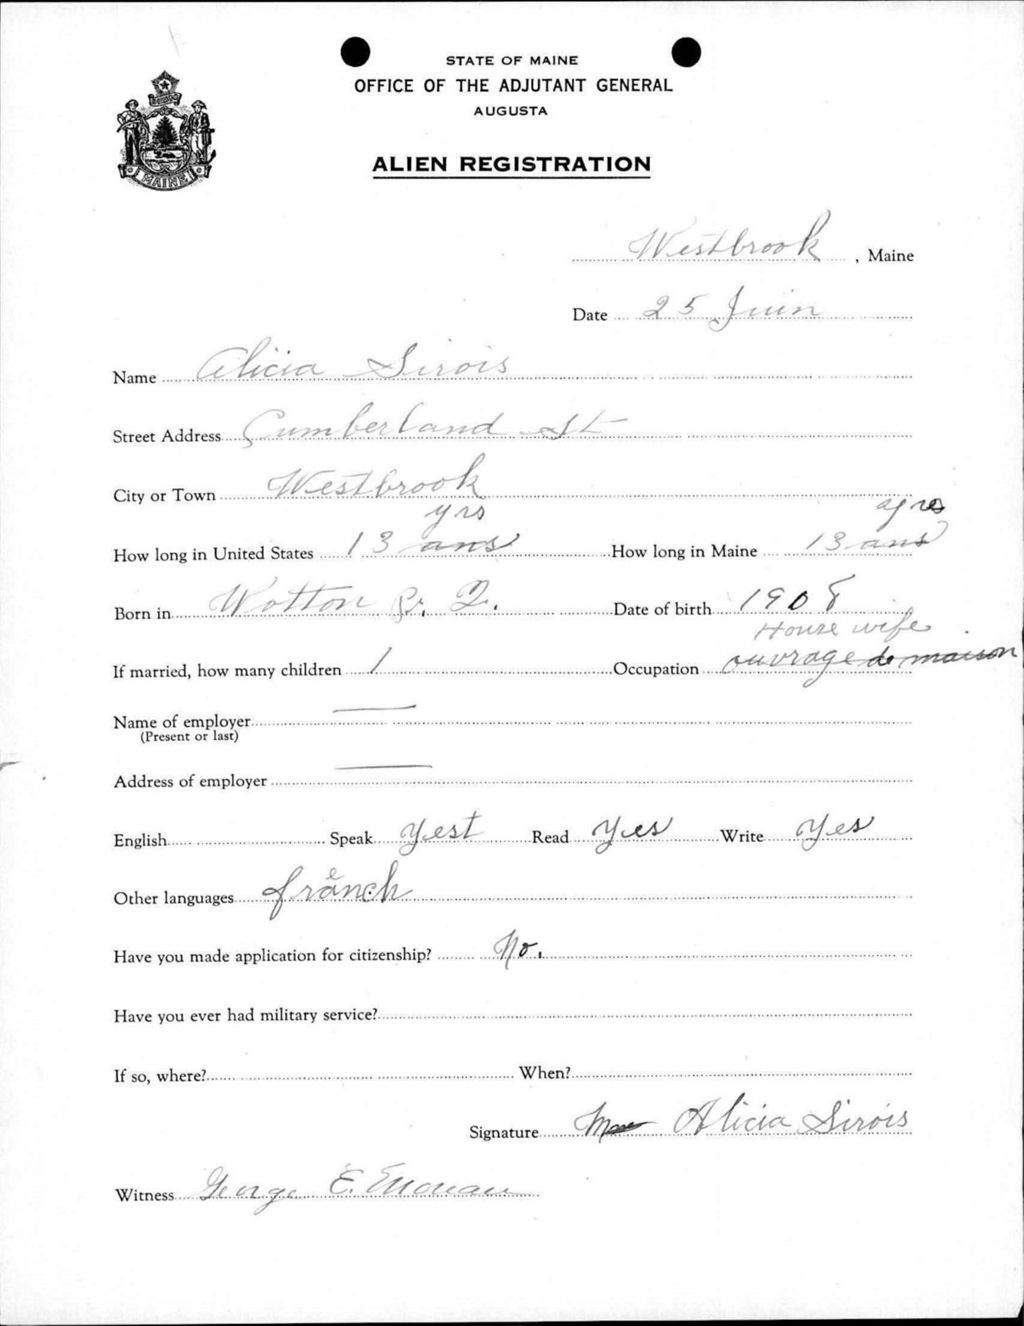 STATE OF MAINE
OFFICE OF THE ADJUTANT GENERAL
AUGUSTA
ALIEN REGISTRATION
MAINE
Westbrook, Maine
Date 25 Juin
Name Alicia Sirois
Street Address Cumberland St
City or Town Westbrook
yrs
How long in United States 13 ans How long in Maine 13 ans
Born in Wotton P. Q. Date of birth 1908
House wife
If married, how many children 1 Occupation ouvrage de maison
Name of employer
(Present or last)
Address of employer
English Speak Yest Read Yes Write Yes
Other languages french
Have you made application for citizenship? No.
Have you ever had military service?
If so, where? When?
Signature Alicia Sirois
Witness George E.